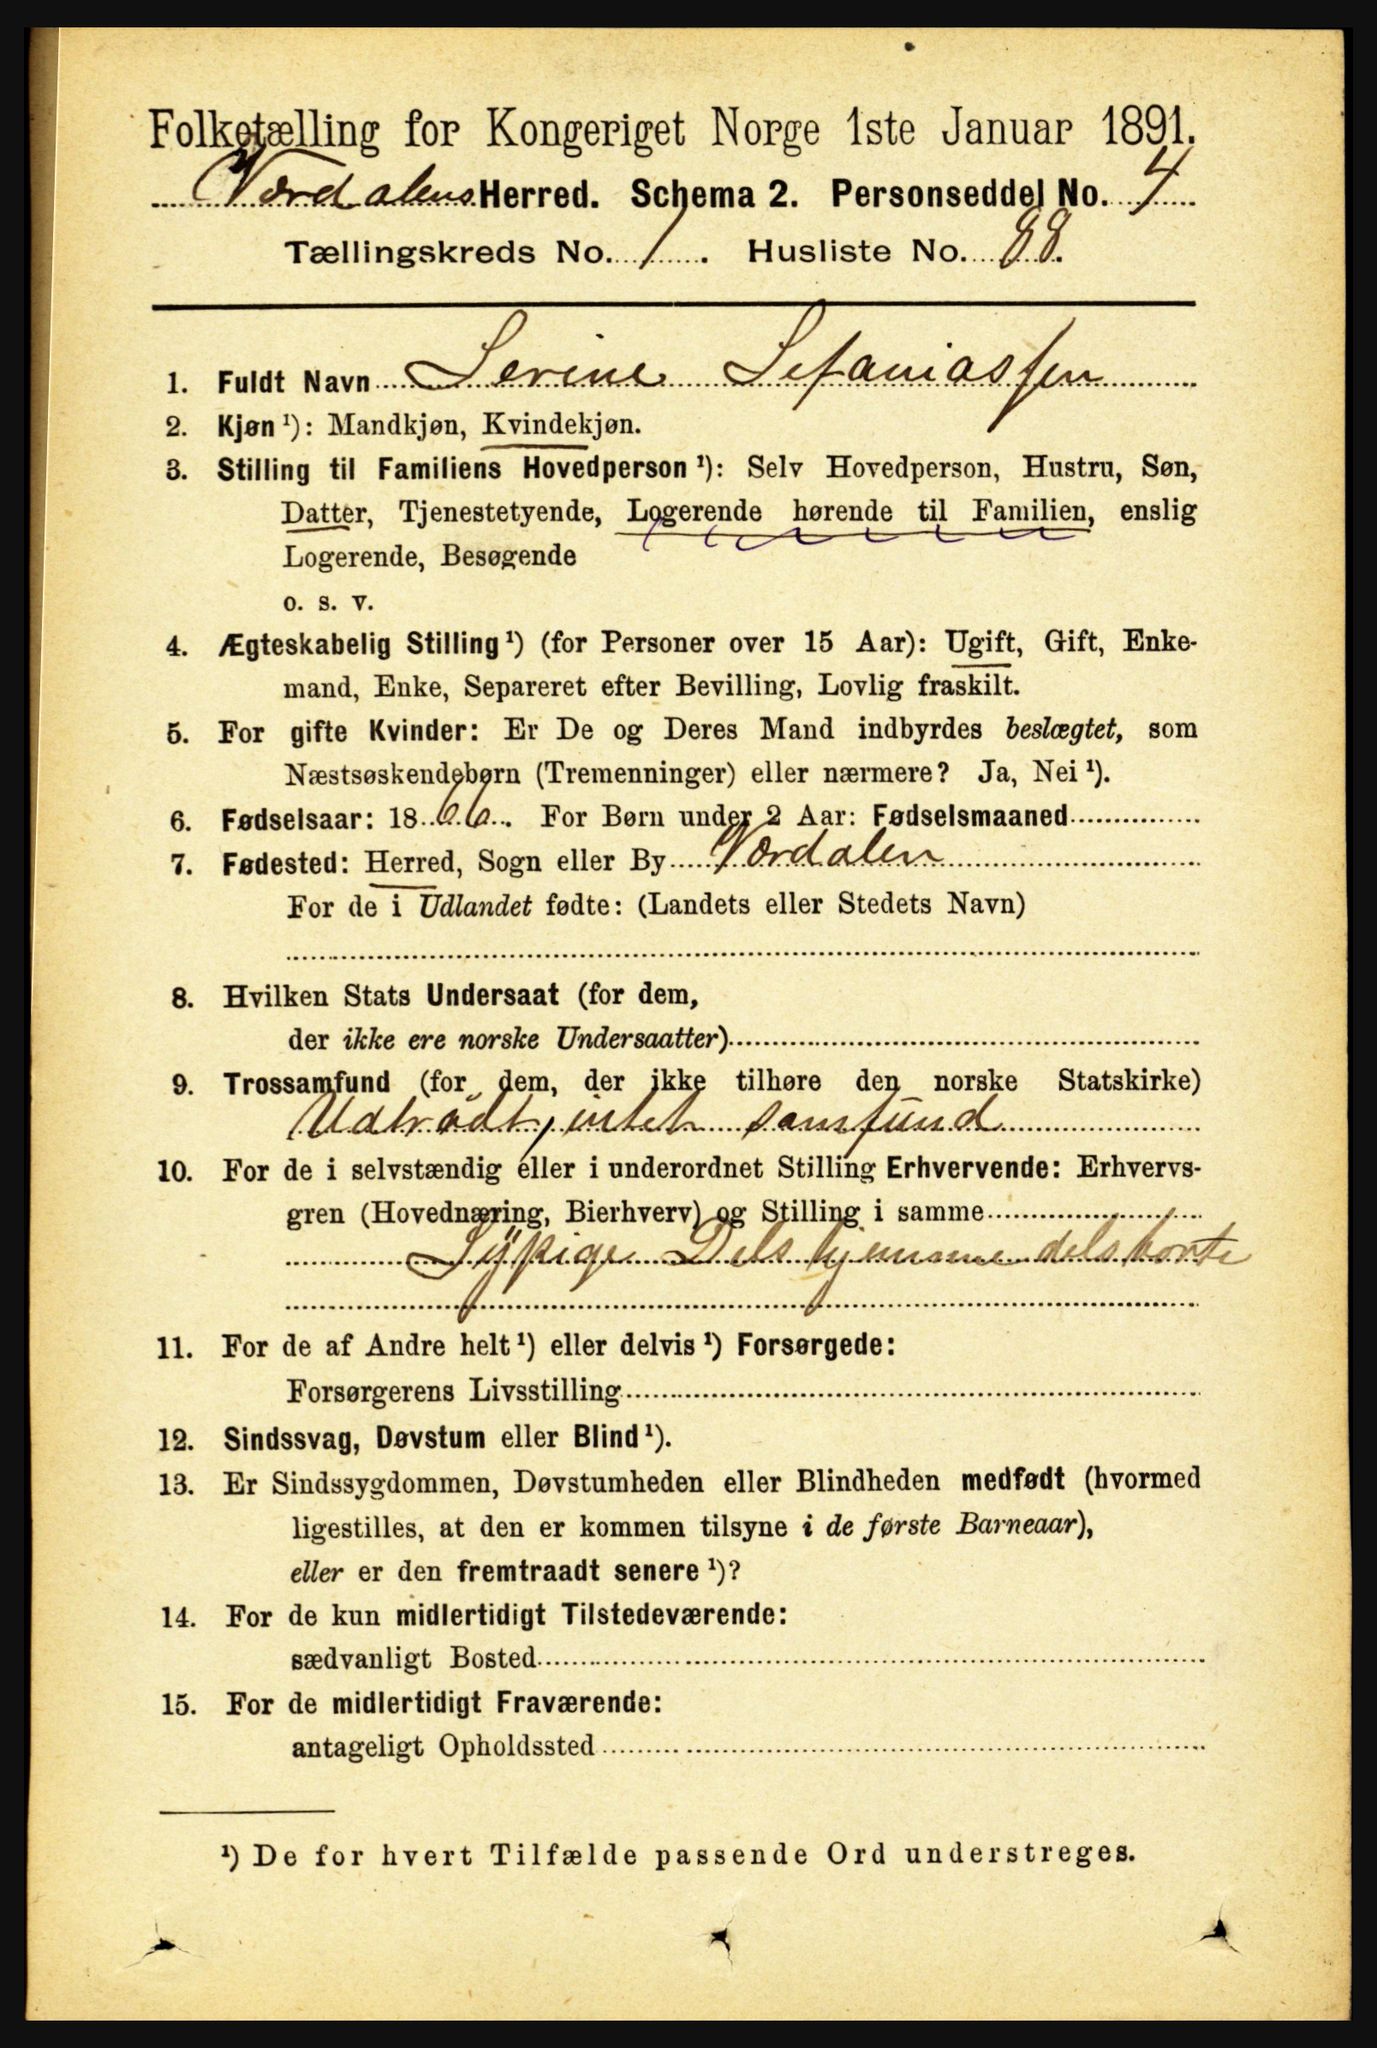 Folketælling for Kongeriget Norge 1ste Januar 1891.
Værdalens Herred. Schema 2. Personseddel No. 4
Tællingskreds No. 1. Husliste No. 88.
1. Fuldt Navn Serine Sefaniassen
2. Kjøn ¹): Mandkjøn, Kvindekjøn.
3. Stilling til Familiens Hovedperson ¹): Selv Hovedperson, Hustru, Søn,
Datter, Tjenestetyende, Logerende hørende til Familien, enslig
Logerende, Besøgende
o. s. v.
4. Ægteskabelig Stilling ¹) (for Personer over 15 Aar): Ugift, Gift, Enke-
mand, Enke, Separeret efter Bevilling, Lovlig fraskilt.
5. For gifte Kvinder: Er De og Deres Mand indbyrdes beslægtet, som
Næstsøskendebørn (Tremenninger) eller nærmere? Ja, Nei ¹).
6. Fødselsaar: 1866. For Børn under 2 Aar: Fødselsmaaned
7. Fødested: Herred, Sogn eller By Værdalen
For de i Udlandet fødte: (Landets eller Stedets Navn)
8. Hvilken Stats Undersaat (for dem,
der ikke ere norske Undersaatter)
9. Trossamfund (for dem, der ikke tilhøre den norske Statskirke)
Udtrådt, intet samfund
10. For de i selvstændig eller i underordnet Stilling Erhvervende: Erhvervs-
gren (Hovednæring, Bierhverv) og Stilling i samme
Sypige Dels hjemme dels borte
11. For de af Andre helt ¹) eller delvis ¹) Forsørgede:
Forsørgerens Livsstilling
12. Sindssvag, Døvstum eller Blind ¹).
13. Er Sindssygdommen, Døvstumheden eller Blindheden medfødt (hvormed
ligestilles, at den er kommen tilsyne i de første Barneaar),
eller er den fremtraadt senere ¹)?
14. For de kun midlertidigt Tilstedeværende:
sædvanligt Bosted
15. For de midlertidigt Fraværende:
antageligt Opholdssted
¹) De for hvert Tilfælde passende Ord understreges.